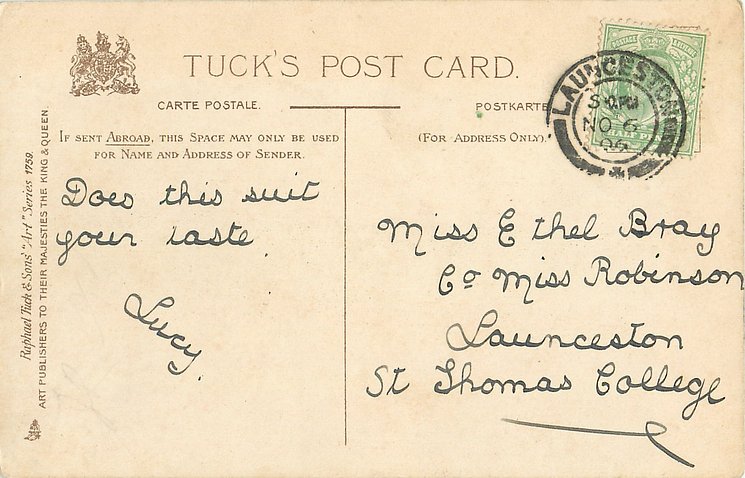 TUCK'S POST CARD.
CARTE POSTALE.
POSTKARTE
IF SENT ABROAD, THIS SPACE MAY ONLY BE USED
FOR NAME AND ADDRESS OF SENDER.
(FOR ADDRESS ONLY).
LAUNCESTON
NO 6
Raphael Tuck & Sons' "Art" Series 1759.
ART PUBLISHERS TO THEIR MAJESTIES THE KING & QUEEN.
Does this suit
your taste
Lucy.
Miss Ethel Bray
Co Miss Robinson
Launceston
St Thomas College